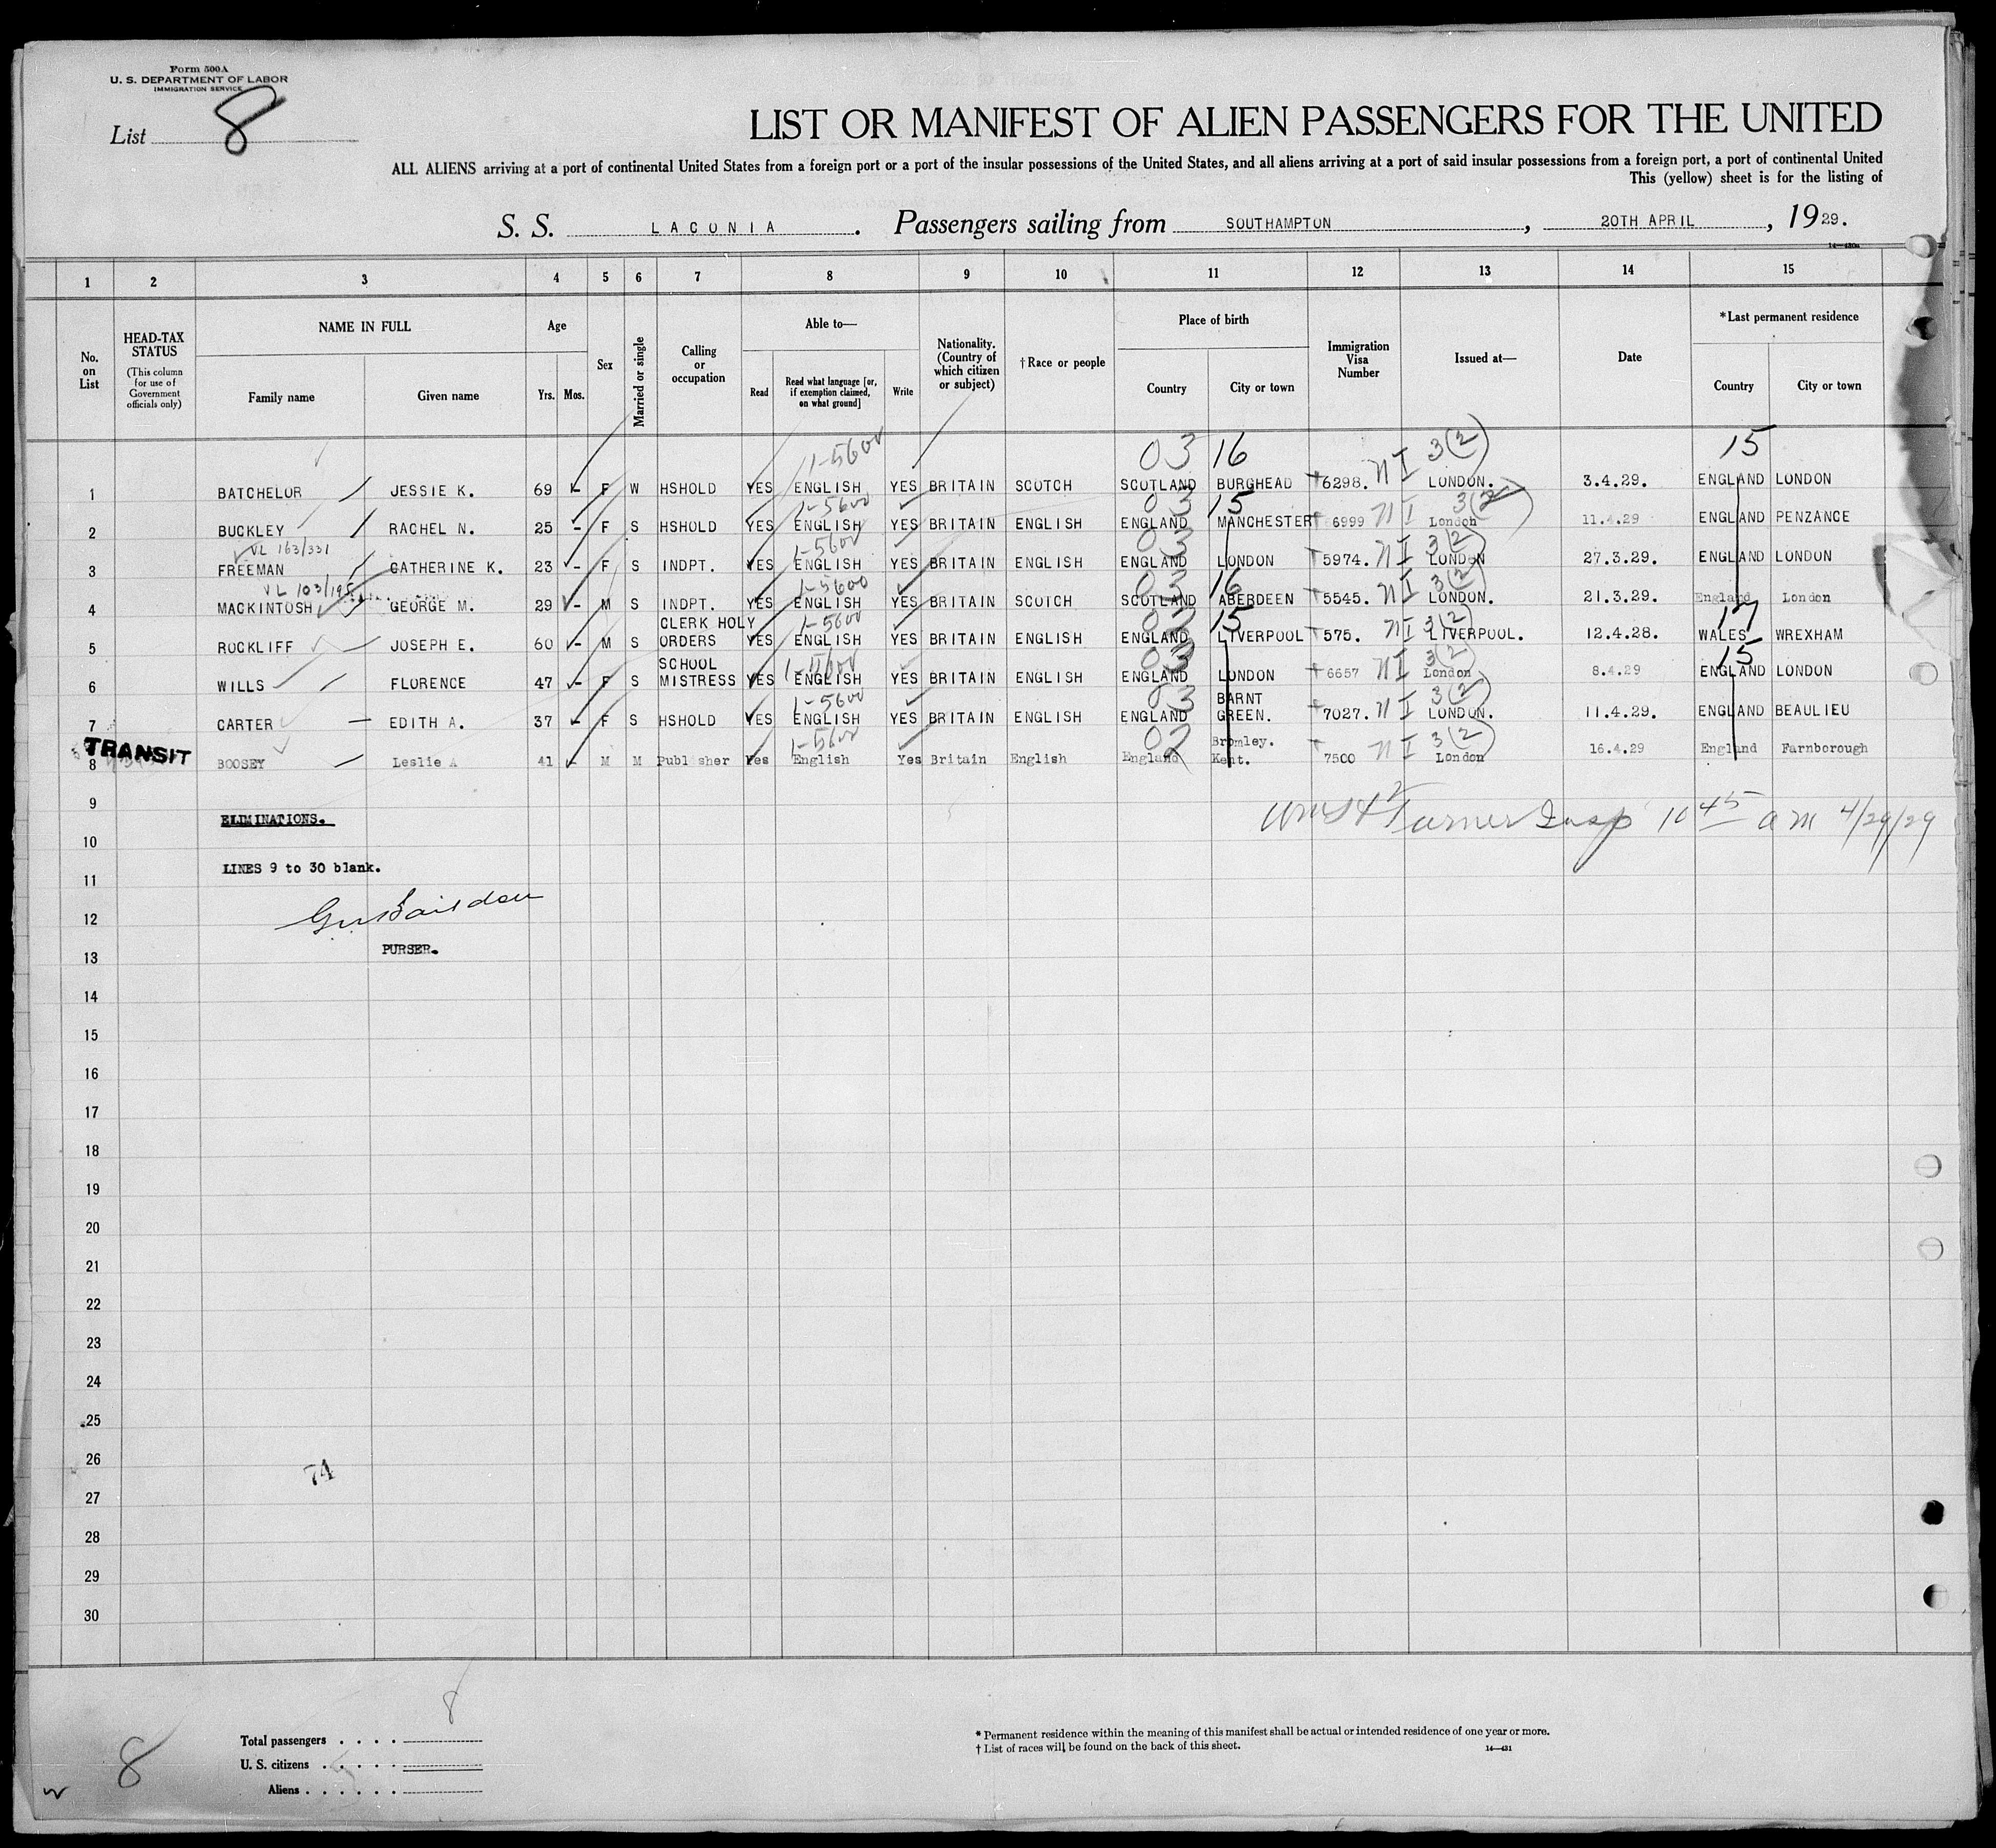 Form 500A
U. S. DEPARTMENT OF LABOR
IMMIGRATION SERVICE
List 8
LIST OR MANIFEST OF ALIEN PASSENGERS FOR THE UNITED
ALL ALIENS arriving at a port of continental United States from a foreign port or a port of the insular possessions of the United States, and all aliens arriving at a port of said insular possessions from a foreign port, a port of continental United
This (yellow) sheet is for the listing of
S. S. LACONIA . Passengers sailing from SOUTHAMPTON , 20TH APRIL , 1929.
14—430a
1 2 3 4 5 6 7 8 9 10 11 12 13 14 15
No. on List
HEAD-TAX STATUS
(This column for use of Government officials only)
NAME IN FULL
Family name Given name
Age
Yrs. Mos.
Sex
Married or single
Calling or occupation
Able to—
Read
Read what language [or, if exemption claimed, on what ground]
Write
Nationality. (Country of which citizen or subject)
†Race or people
Place of birth
Country City or town
Immigration Visa Number
Issued at—
Date
*Last permanent residence
Country City or town
1-5600 03 16 NI 3(2) 15
1 BATCHELOR JESSIE K. 69 - F W HSHOLD YES ENGLISH YES BRITAIN SCOTCH SCOTLAND BURGHEAD 6298. LONDON. 3.4.29. ENGLAND LONDON
1-5600 03 15 NI 3(2)
2 BUCKLEY RACHEL N. 25 - F S HSHOLD YES ENGLISH YES BRITAIN ENGLISH ENGLAND MANCHESTER 6999 London 11.4.29 ENGLAND PENZANCE
VL 163/331 1-5600 03 NI 3(2)
3 FREEMAN CATHERINE K. 23 - F S INDPT. YES ENGLISH YES BRITAIN ENGLISH ENGLAND LONDON 5974. LONDON 27.3.29. ENGLAND LONDON
VL 103/195 1-5600 03 16 NI 3(2)
4 MACKINTOSH GEORGE M. 29 - M S INDPT. YES ENGLISH YES BRITAIN SCOTCH SCOTLAND ABERDEEN 5545. LONDON. 21.3.29. England London
1-5600 03 15 NI 3(2) 17
5 ROCKLIFF JOSEPH E. 60 - M S CLERK HOLY ORDERS YES ENGLISH YES BRITAIN ENGLISH ENGLAND LIVERPOOL 575. LIVERPOOL. 12.4.28. WALES WREXHAM
03 NI 3(2) 15
6 WILLS FLORENCE 47 - F S SCHOOL MISTRESS YES ENGLISH YES BRITAIN ENGLISH ENGLAND LONDON 6657 London 8.4.29 ENGLAND LONDON
1-5600 03 NI 3(2)
7 CARTER EDITH A. 37 - F S HSHOLD YES ENGLISH YES BRITAIN ENGLISH ENGLAND BARNT GREEN. 7027. LONDON. 11.4.29. ENGLAND BEAULIEU
TRANSIT 1-5600 NI 3(2)
8 BOOSEY Leslie A 41 - M M Publ sher Yes English Yes Britain English England Bromley. Kent. 7500 London 16.4.29 England Farnborough
9
ELIMINATIONS.
Turner Insp 10 45 am 4/29/29
10
LINES 9 to 30 blank.
11
12
PURSER.
13
14
15
16
17
18
19
20
21
22
23
24
25
26
74
27
28
29
30
8
Total passengers . . . .
U. S. citizens . . . . .
Aliens . . . . . .
8
* Permanent residence within the meaning of this manifest shall be actual or intended residence of one year or more.
† List of races will be found on the back of this sheet.
14—431